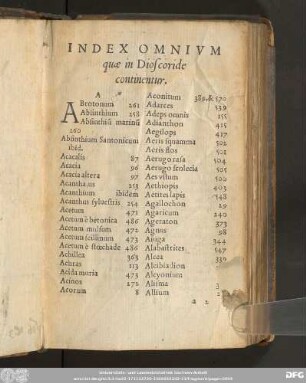 INDEX OMNIVM
quæ in Dioscoride
continentur.
A
ABrotonum 261
Absinthium 258
Absinthiũ marinũ
260
Absinthium Santonicum
ibid.
Acacalis 87
Acacia 96
Acacia altera 97
Acanthium ibidem
Acanthus sylvestris 254
Acetum 471
Acetum è betonica 486
Acetum mulsum 472
Acetum scilinum 473
Acetum è stœchade 486
Achillea 363
Achras 113
Acida muria 473
Acinos
Acorum 8
Aconitum 389. & 570
Adarces 539
Adeps omnis 155
Adianthon 425
Aegilops 417
Aeris squamma 502
Aeris flos 501
Aerugo rasa 504
Aerugo scolecia 505
Aes ustum 500
Aethiopis 403
Aetites lapis 548
Agallochon 29
Agaricum 240
Ageraton 373
Agnus 88
Aiuga 344
Alabastrites 547
Alcea 339
Alcibiadion
Alcyonium
Alisma
Allium
a 2